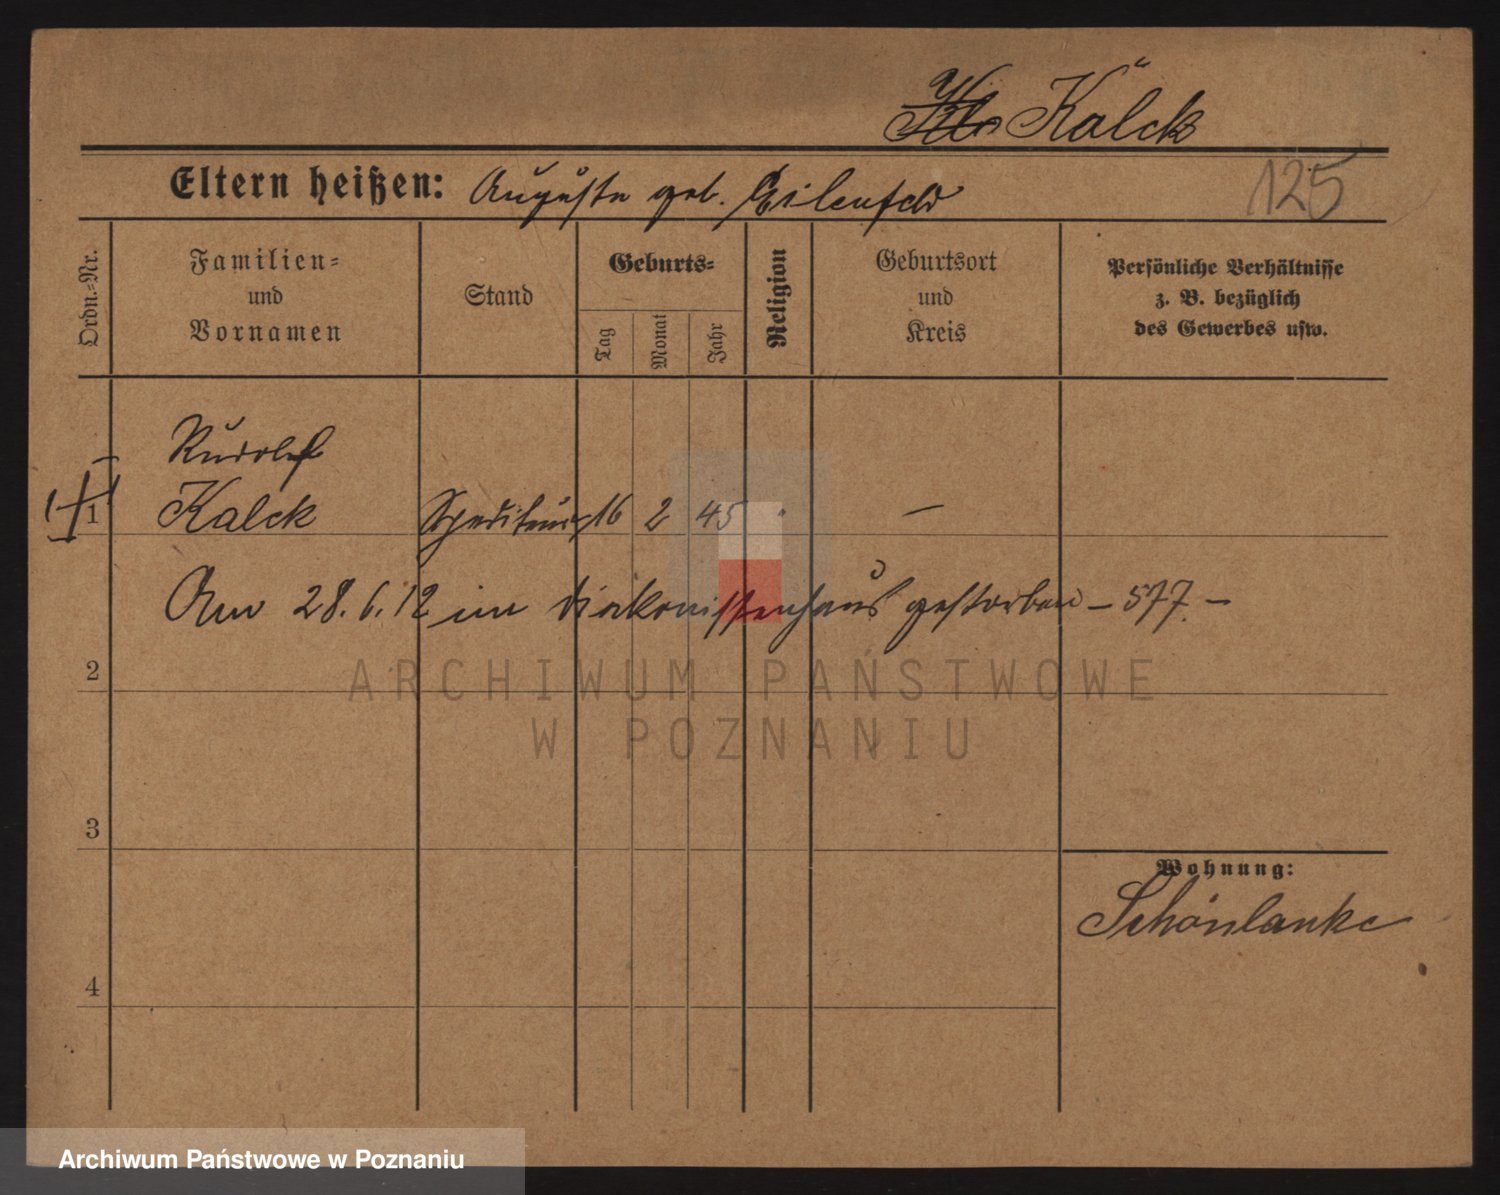 Kälck
Eltern heißen: Auguste geb. Eilenfeld
125
Ordn.-Nr.
Familien-
und
Vornamen
Stand
Geburts-
Tag
Monat
Jahr
Religion
Geburtsort
und
Kreis
Persönliche Verhältnisse
z. B. bezüglich
des Gewerbes usw.
Rudolf
1 Kalck Spediteur 16 2 45 —
Am 28.6.12 im Diakonissenhaus gestorben – 577. –
2
3
4
Wohnung:
Schönlanke
ARCHIWUM PAŃSTWOWE
W POZNANIU
Archiwum Państwowe w Poznaniu